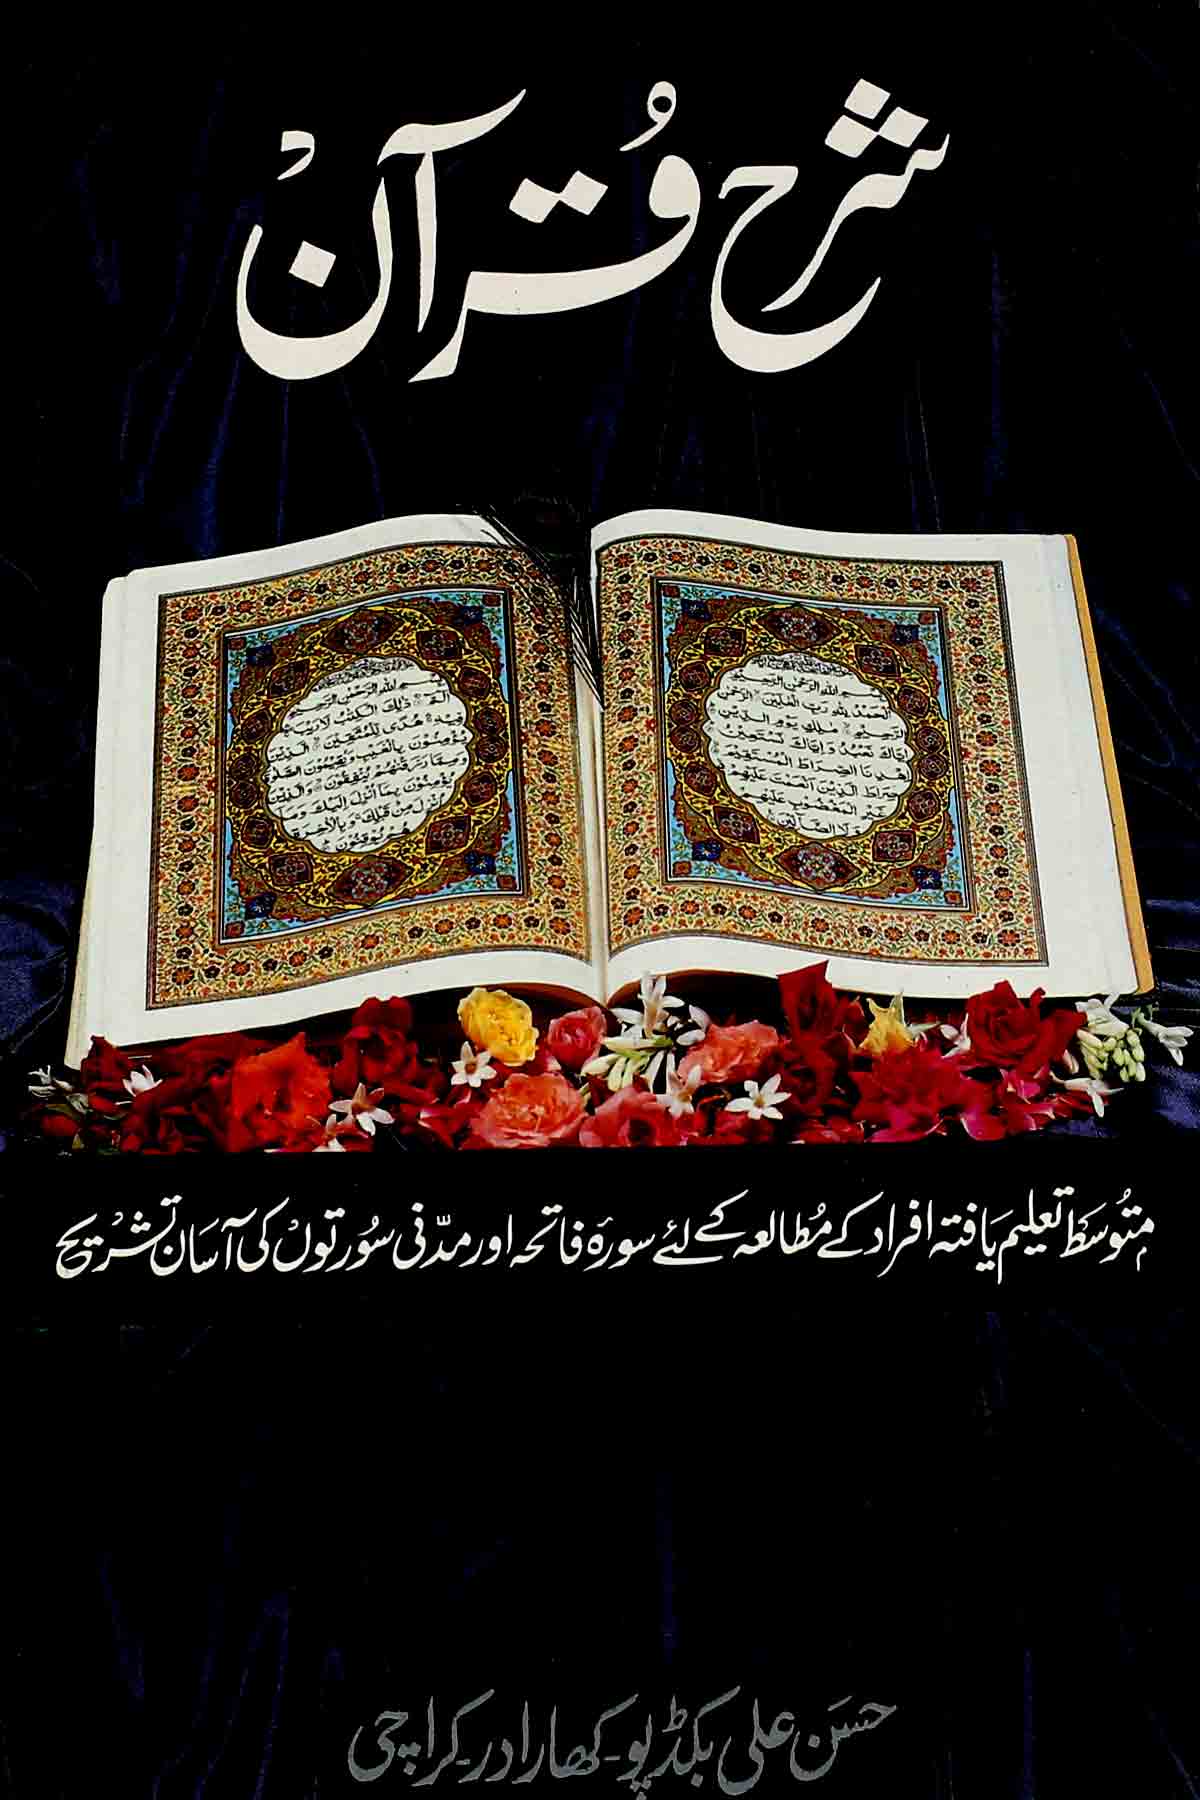 شرح قُرآنْ
بِسْمِ اللهِ الرَّحْمٰنِ الرَّحِيْمِ
اَلْحَمْدُ لِلّٰهِ رَبِّ الْعٰلَمِيْنَ الرَّحْمٰنِ
الرَّحِيْمِ مٰلِكِ يَوْمِ الدِّيْنِ
اِيَّاكَ نَعْبُدُ وَ اِيَّاكَ نَسْتَعِيْنُ
اِهْدِنَا الصِّرَاطَ الْمُسْتَقِيْمَ
صِرَاطَ الَّذِيْنَ اَنْعَمْتَ عَلَيْهِمْ
غَيْرِ الْمَغْضُوْبِ عَلَيْهِمْ
وَلَا الضَّآلِّيْنَ
بِسْمِ اللهِ الرَّحْمٰنِ الرَّحِيْمِ
الٓمّٓ ذٰلِكَ الْكِتٰبُ لَا رَيْبَ
فِيْهِ هُدًى لِّلْمُتَّقِيْنَ الَّذِيْنَ
يُؤْمِنُوْنَ بِالْغَيْبِ وَ يُقِيْمُوْنَ الصَّلٰوةَ
وَ مِمَّا رَزَقْنٰهُمْ يُنْفِقُوْنَ وَالَّذِيْنَ
يُؤْمِنُوْنَ بِمَا اُنْزِلَ اِلَيْكَ وَمَا
اُنْزِلَ مِنْ قَبْلِكَ وَ بِالْاٰخِرَةِ
هُمْ يُوْقِنُوْنَ
متُوسّط تعلیم یافتہ افراد کے مُطالعہ کے لئے سورۂ فاتحہ اور مدنی سُورتوں کی آسان تشریح
حسَن علی بکڈپو۔ کھارادر۔ کراچی